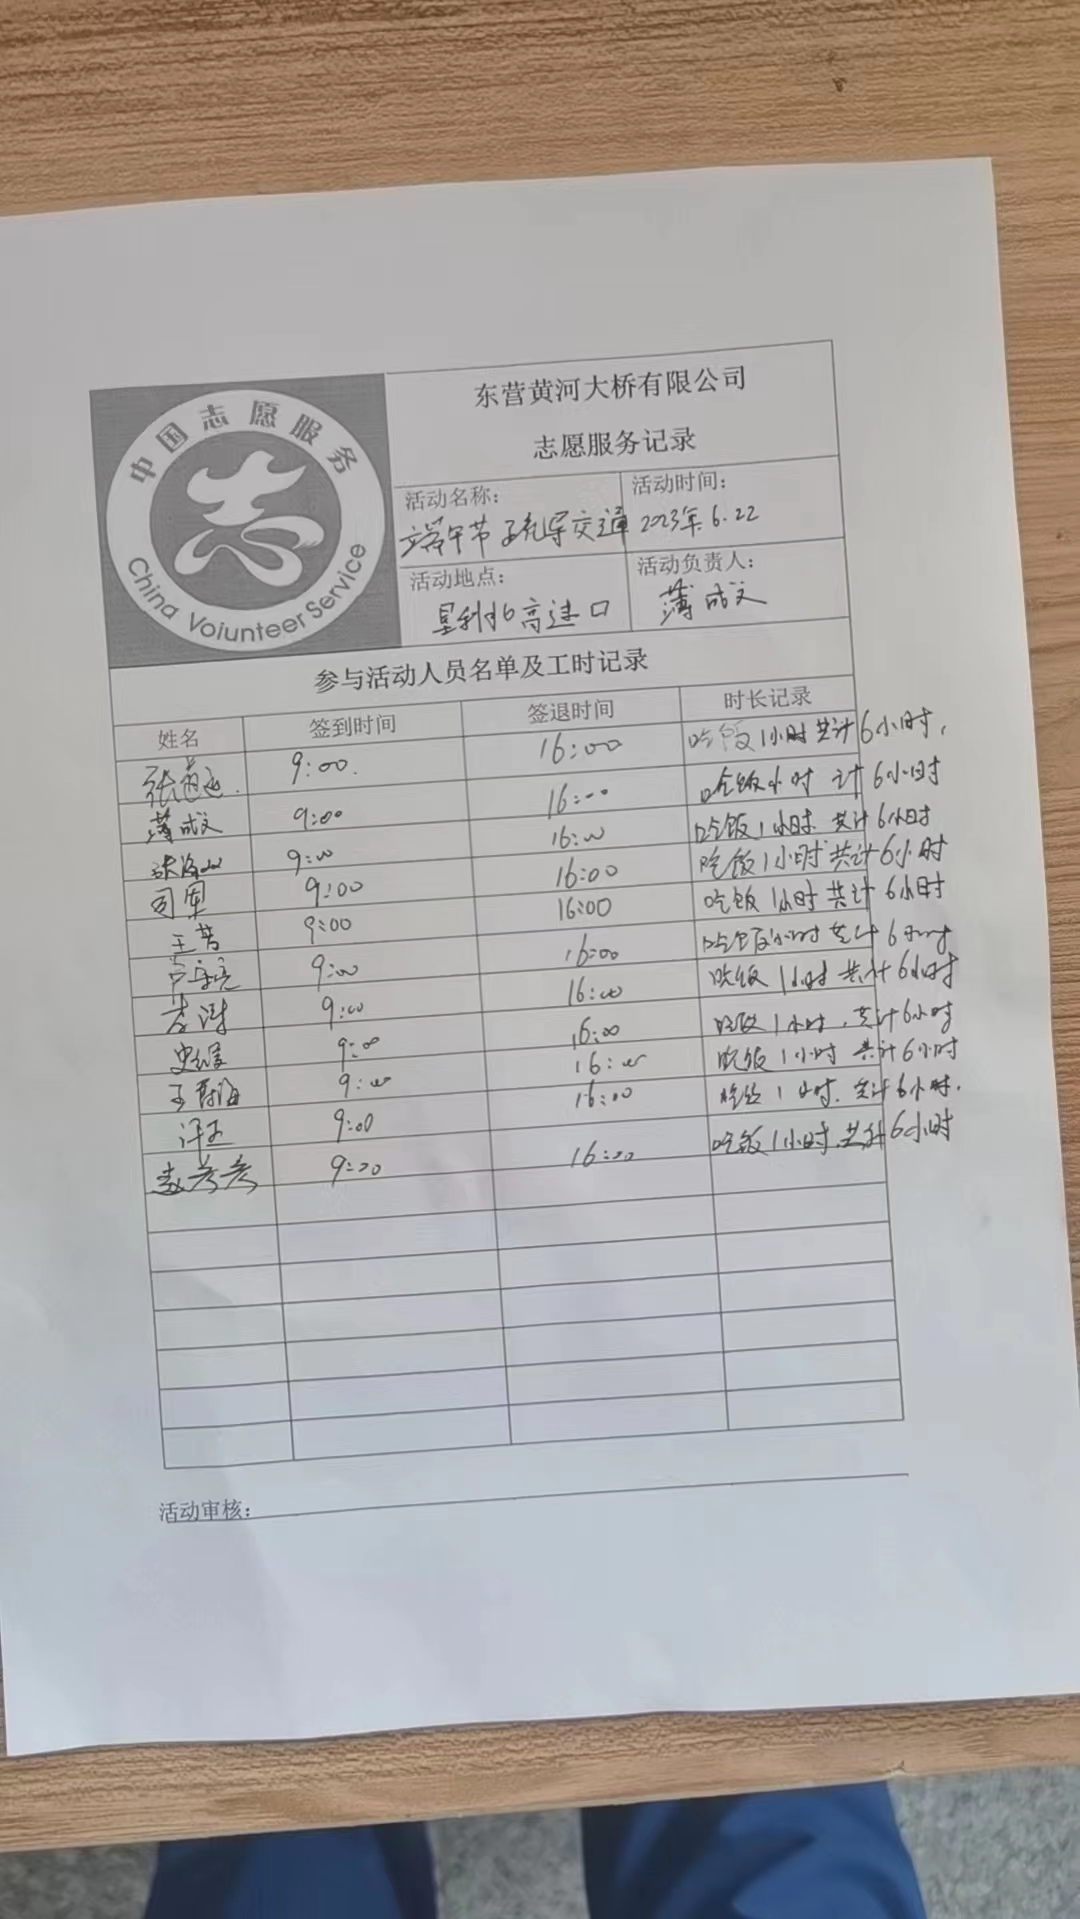 中国志愿服务
China Voiunteer Service
东营黄河大桥有限公司
志愿服务记录
活动名称：
端午节疏导交通
活动时间：
2023年.6.22
活动地点：
垦利北高速口
活动负责人：
薄成文
参与活动人员名单及工时记录
姓名 签到时间 签退时间 时长记录
9:00. 16:00 吃饭1小时共计6小时,
薄成文 9:00 16:00 吃饭小时 计6小时
9:00 16:00 吃饭1小时 共计6小时
司军 9:00 16:00 吃饭1小时共计6小时
王芳 9:00 16:00 吃饭1小时共计6小时
9:00 16:00 吃饭1小时共计6小时
9:00 16:00 吃饭1小时共计6小时
9:00 16:00 吃饭1小时,共计6小时
9:00 16:00 吃饭1小时 共计6小时
9:00 16:00 吃饭1小时.共计6小时.
9:00 16:00 吃饭1小时.共计6小时
活动审核：